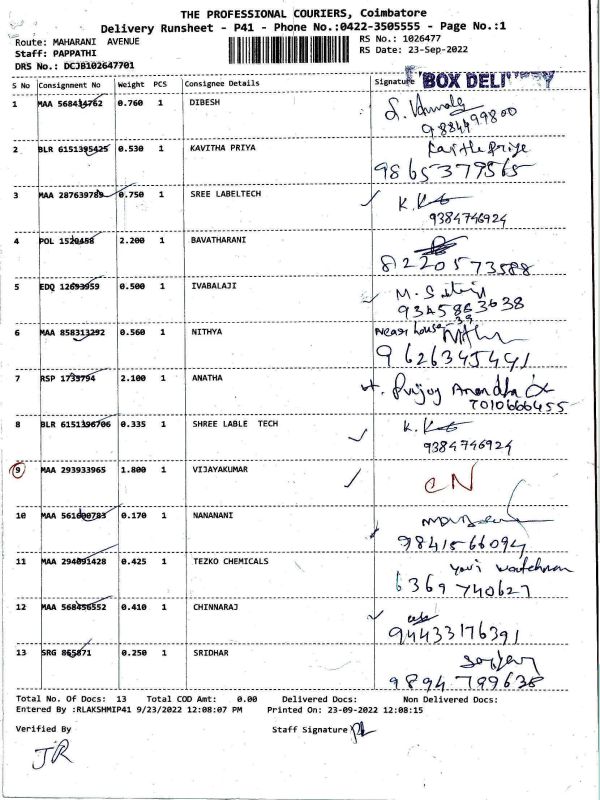 THE PROFESSIONAL COURIERS, Coimbatore
Delivery Runsheet - P41 - Phone No.:0422-3505555 - Page No.:1
Route: MAHARANI AVENUE RS No.: 1026477
Staff: PAPPATHI RS Date: 23-Sep-2022
DRS No.: DCJB102647701
S No Consignment No Weight PCS Consignee Details Signature BOX DELIVERY
1 MAA 568434762 0.760 1 DIBESH
9884499800
2 BLR 6151395425 0.530 1 KAVITHA PRIYA
9865379565
3 MAA 287639789 0.750 1 SREE LABELTECH K.
9384746924
4 POL 1520458 2.200 1 BAVATHARANI
8220573588
5 EDQ 12693959 0.500 1 IVABALAJI
9345863638
6 MAA 858313292 0.560 1 NITHYA Near house
9626345491
7 RSP 1735794 2.100 1 ANATHA
7010666455
8 BLR 6151396706 0.335 1 SHREE LABLE TECH K.
9384746924
9 MAA 293933965 1.800 1 VIJAYAKUMAR CN
10 MAA 561600783 0.170 1 NANANANI
9841566094
11 MAA 294091428 0.425 1 TEZKO CHEMICALS watchman
6369740627
12 MAA 568456552 0.410 1 CHINNARAJ
94433176391
13 SRG 865871 0.250 1 SRIDHAR
9894799638
Total No. Of Docs: 13 Total COD Amt: 0.00 Delivered Docs: Non Delivered Docs:
Entered By :RLAKSHMIP41 9/23/2022 12:08:07 PM Printed On: 23-09-2022 12:08:15
Verified By Staff Signature
JR